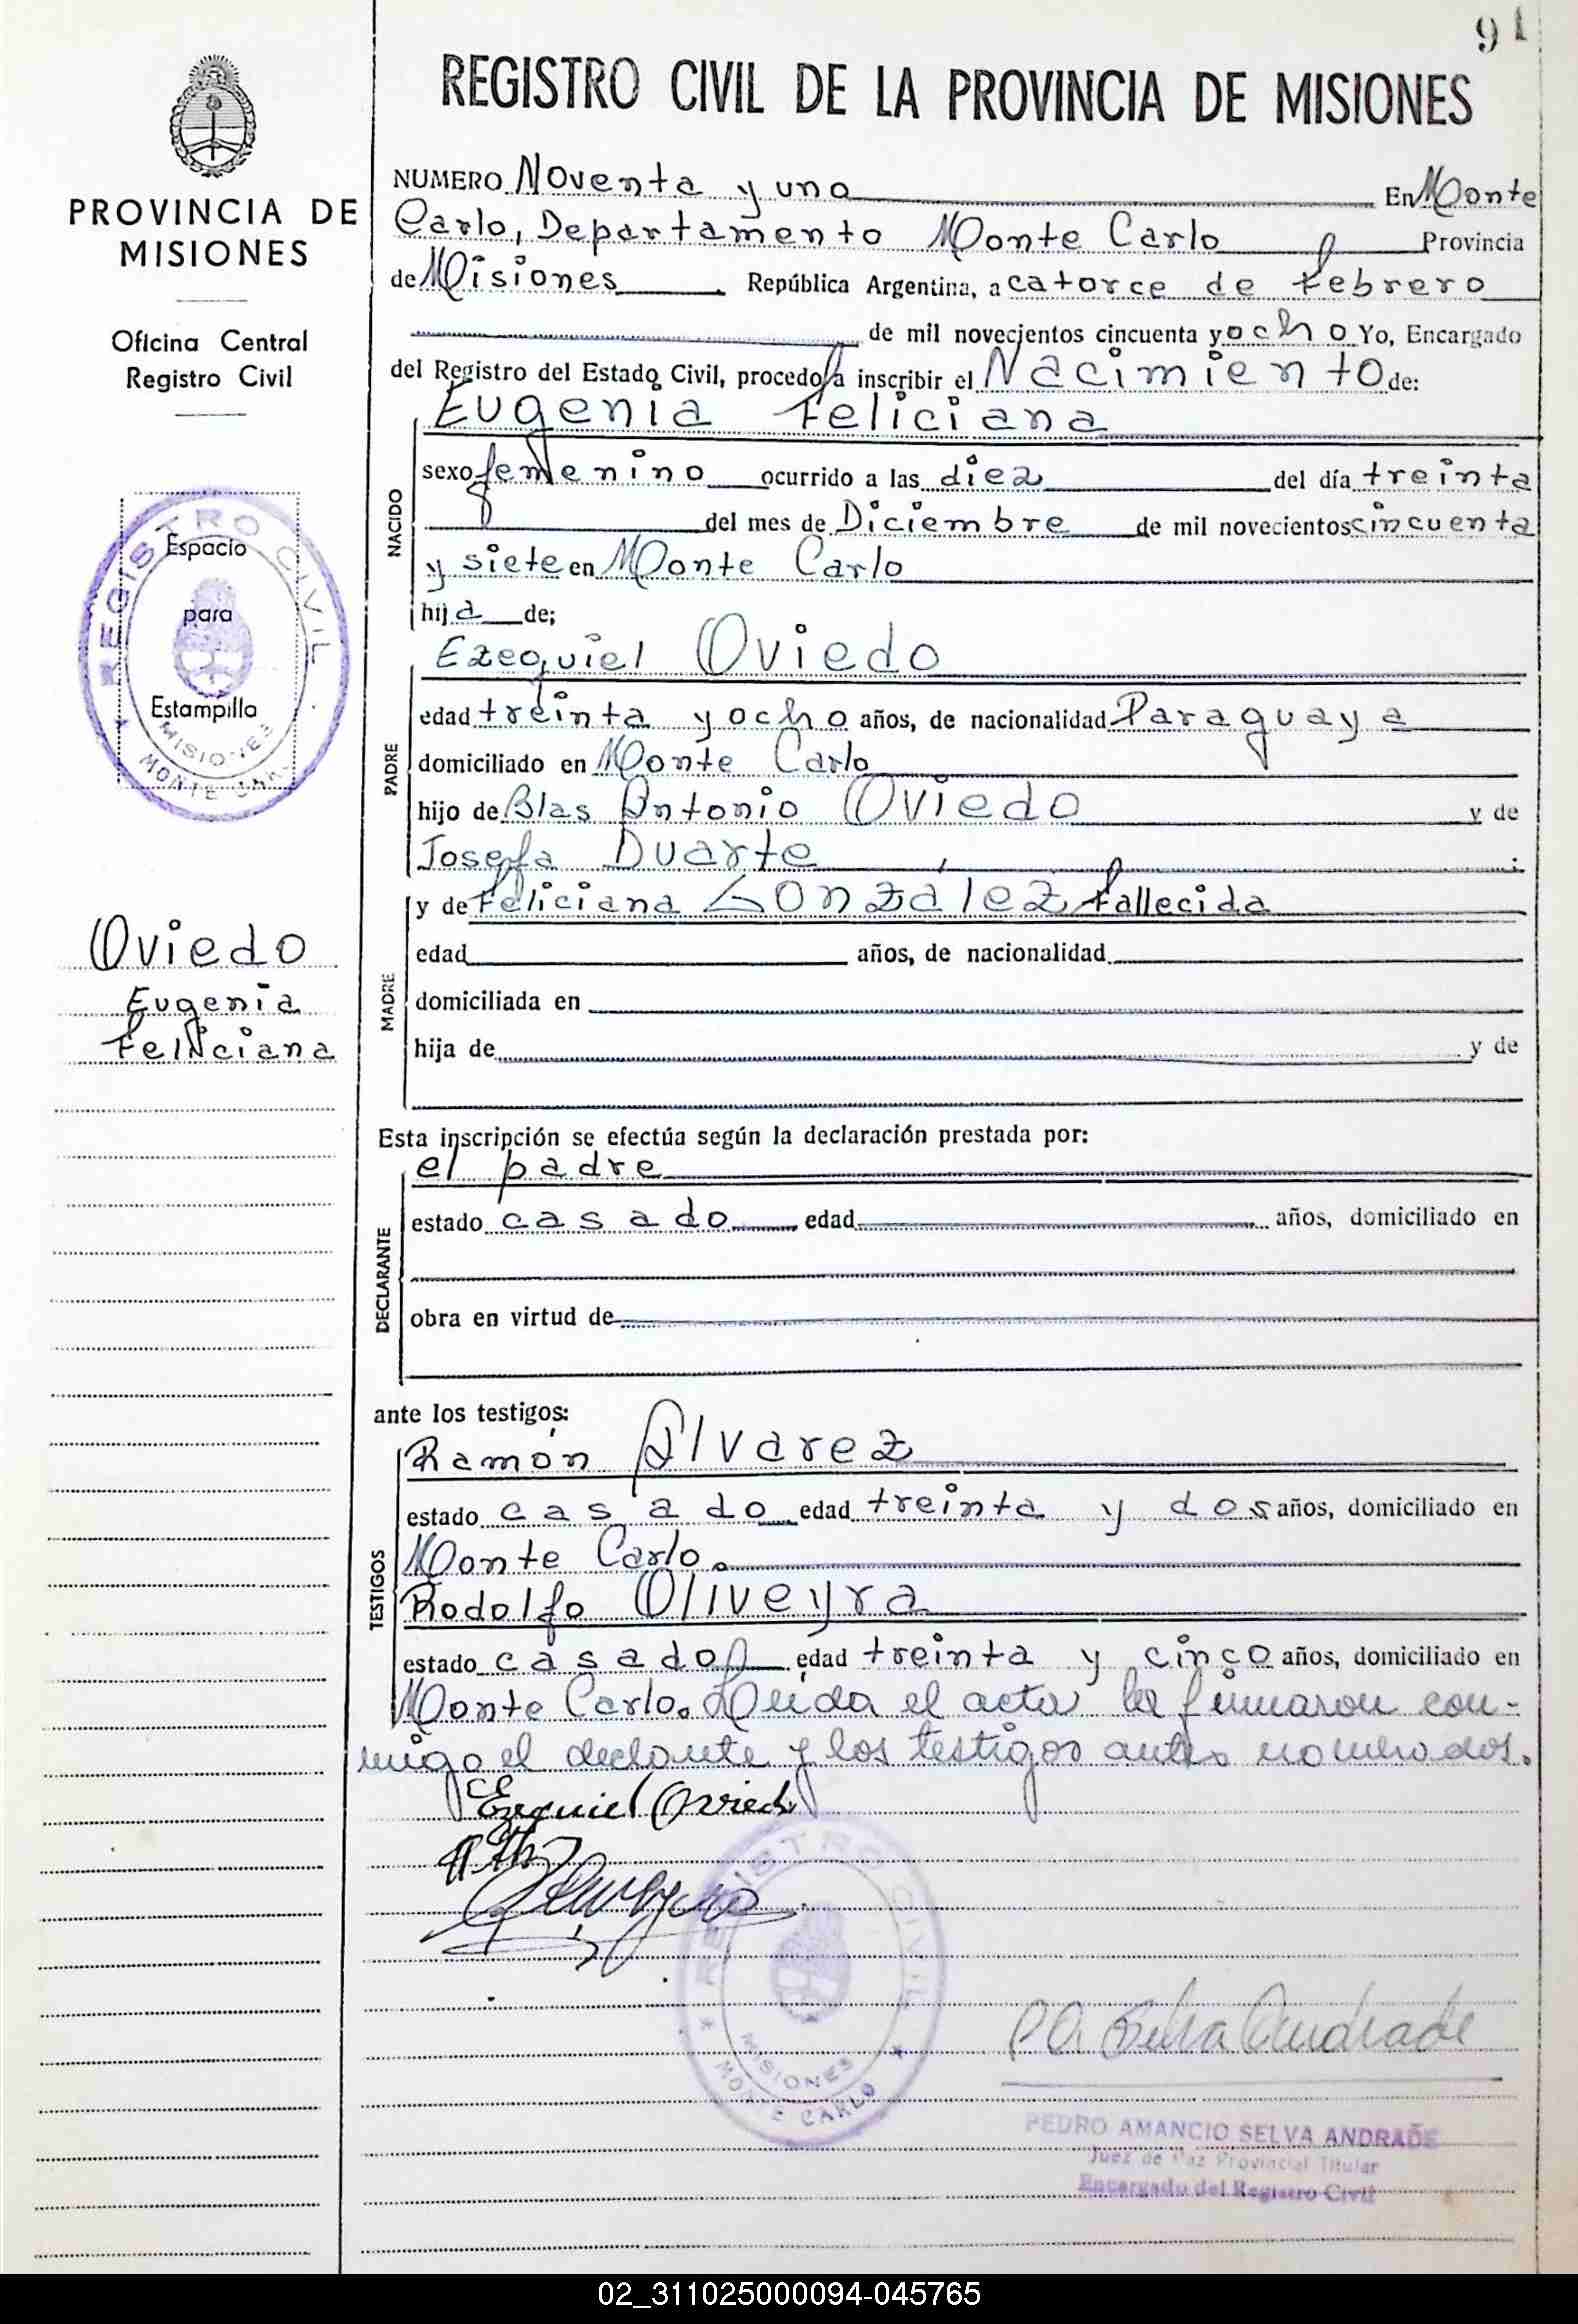 91
REGISTRO CIVIL DE LA PROVINCIA DE MISIONES
PROVINCIA DE
MISIONES
Oficina Central
Registro Civil
REGISTRO CIVIL
Espacio
para
Estampilla
MISIONES
MONTE CAR
Oviedo
Eugenia
Feliciana
NUMERO Noventa y uno En Monte
Carlo, Departamento Monte Carlo Provincia
de Misiones República Argentina, a catorce de febrero
de mil novecientos cincuenta y ocho Yo, Encargado
del Registro del Estado Civil, procedo a inscribir el Nacimiento de:
NACIDO
Eugenia Feliciana
sexo femenino ocurrido a las diez del día treinta
del mes de Diciembre de mil novecientos cincuenta
y siete en Monte Carlo
hija de;
PADRE
Ezequiel Oviedo
edad treinta y ocho años, de nacionalidad Paraguaya
domiciliado en Monte Carlo
hijo de Blas Antonio Oviedo y de
Josefa Duarte ;
MADRE
y de Feliciana González fallecida
edad años, de nacionalidad
domiciliada en
hija de y de
Esta inscripción se efectúa según la declaración prestada por:
DECLARANTE
el padre
estado casado edad años, domiciliado en
obra en virtud de
ante los testigos:
TESTIGOS
Ramón Alvarez
estado casado edad treinta y dos años, domiciliado en
Monte Carlo.
Rodolfo Oliveyra
estado casado edad treinta y cinco años, domiciliado en
Monte Carlo. Leida el acta la firmaron con-
migo el declante y los testigos antes nombrados.
Ezequiel Oviedo
REGISTRO CIVIL
MISIONES
MONTE CARLO
P. A. Selva Andrade
PEDRO AMANCIO SELVA ANDRADE
Juez de Paz Provincial Titular
Encargado del Registro Civil
02_311025000094-045765